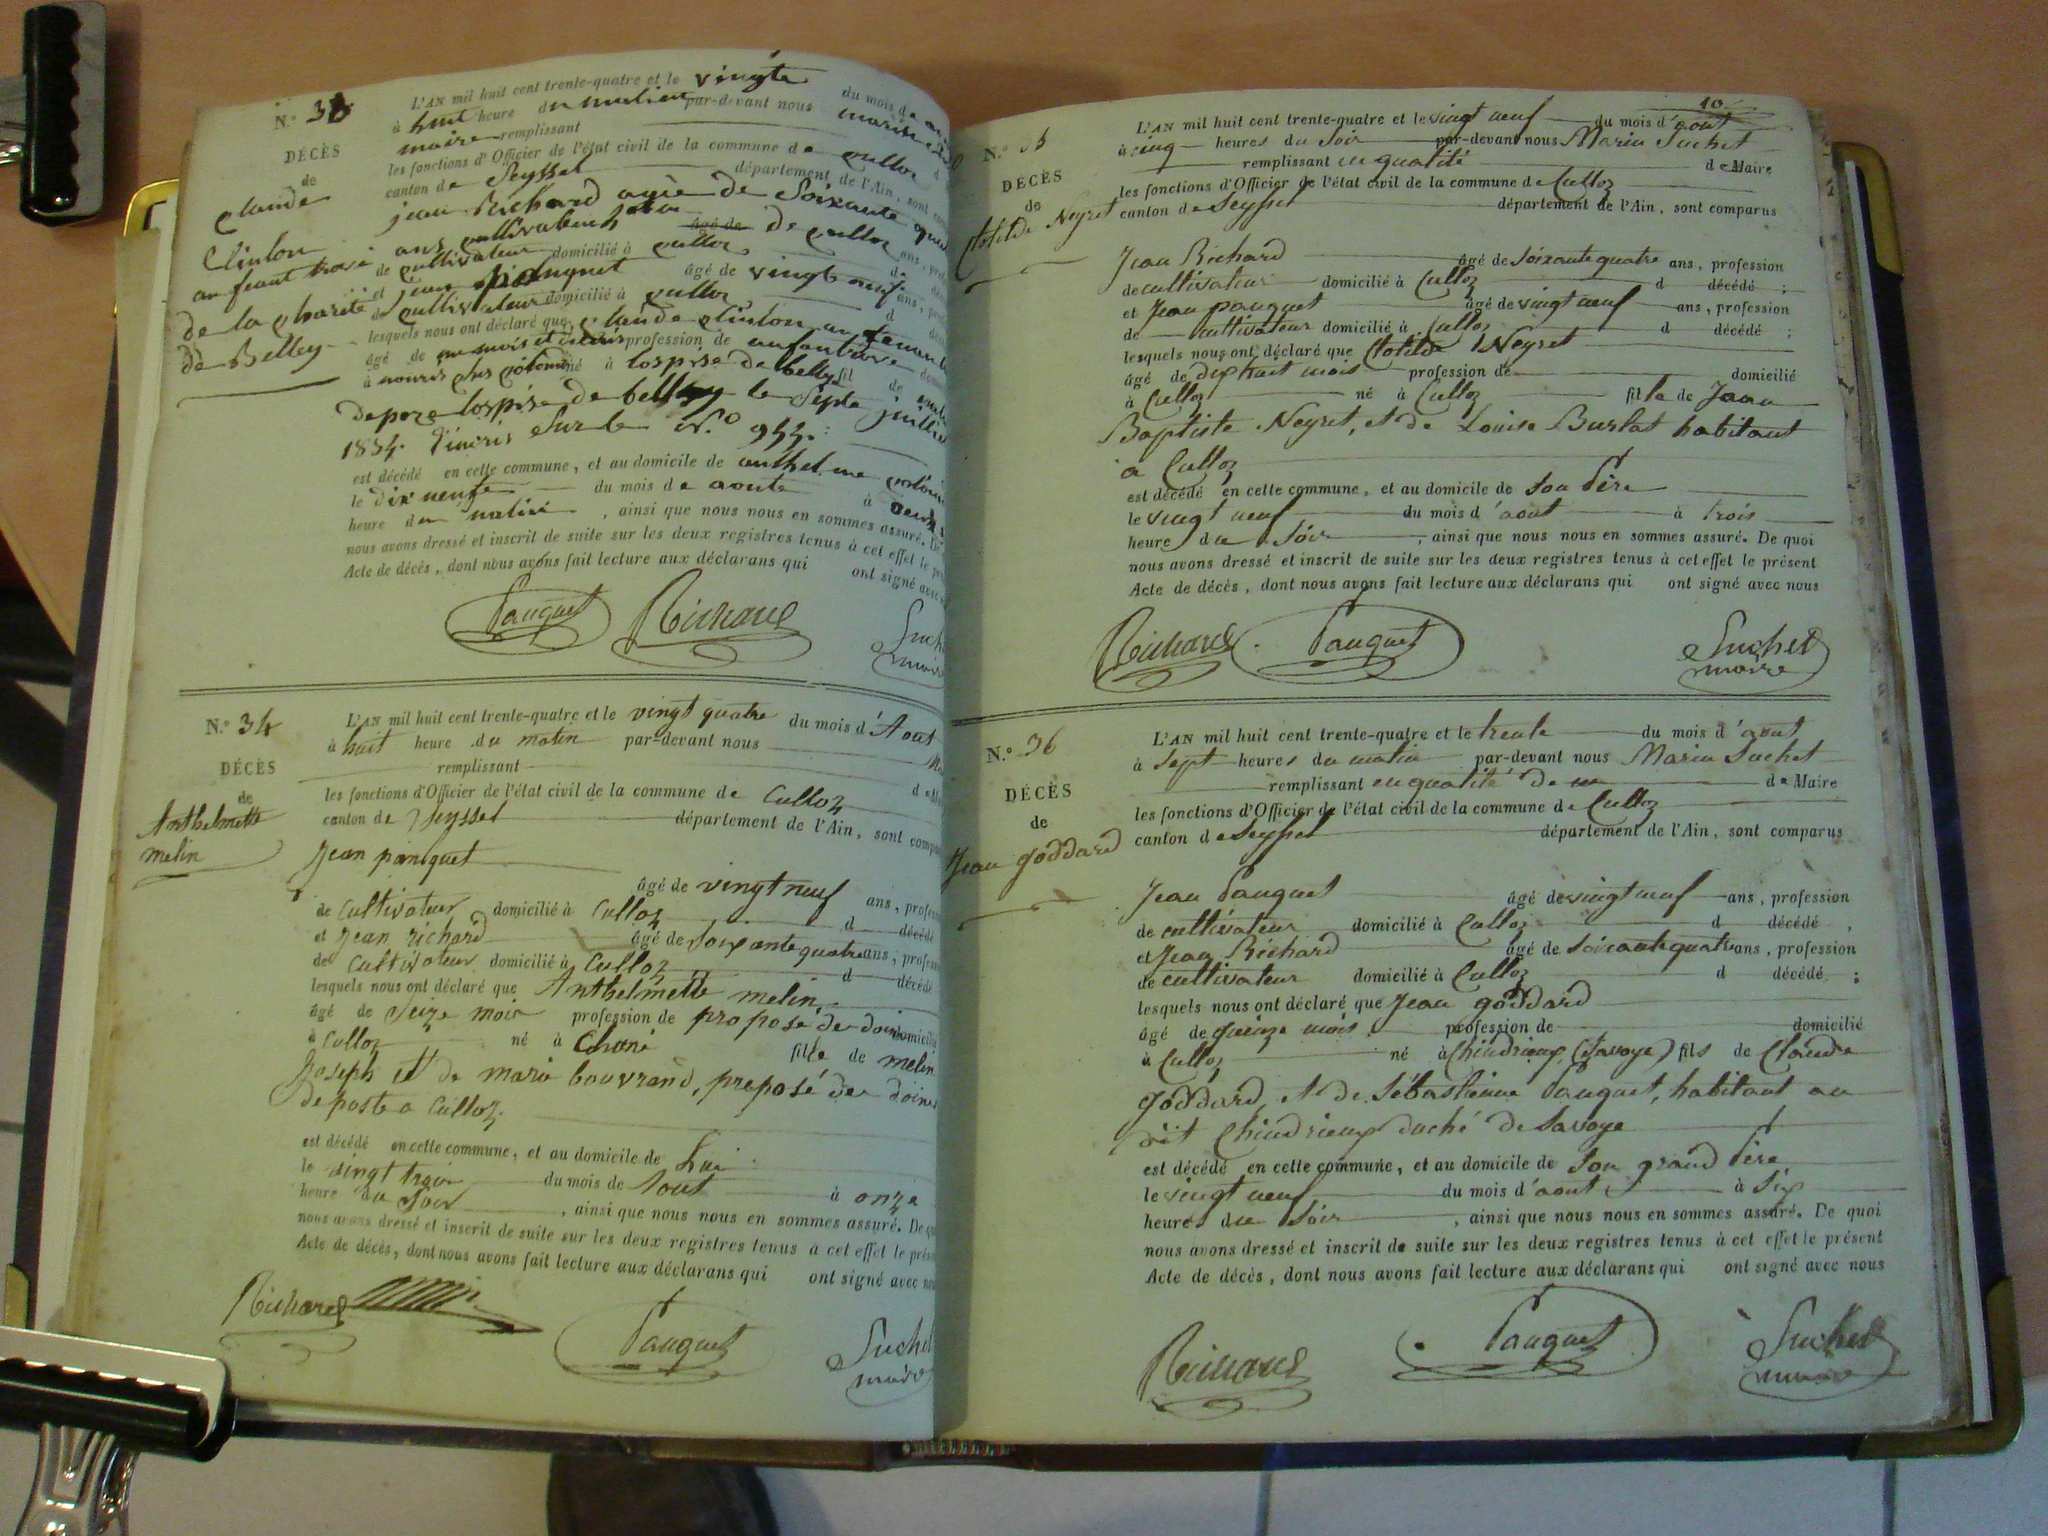 N.º 33
DÉCÈS
de
Claude
Clinton
enfant trouvé
de la charité
de Belley
L'AN mil huit cent trente-quatre et le vingte du mois de
à huit heure du matien par-devant nous
maire remplissant
les fonctions d'Officier de l'état civil de la commune de culloz
canton de Seyssel département de l'Ain, sont
jean Richard agée de Soixante
ans cultivateur âgé de de culloz ans,
de cultivateur domicilié à culloz
et jean âgé de vingt neuf ans,
de cultivateur domicilié à culloz d
lesquels nous ont déclaré que claude clinton
âgé de profession de
à né à lospise de belley fil de
depoze lospise de belley le Septe juillie
1834. Sur le N.º 944.
est décédé en cette commune, et au domicile de anthelme
le dix neufe du mois de aoute à
heure du matin , ainsi que nous nous en sommes assuré. De
nous avons dressé et inscrit de suite sur les deux registres tenus à cet effet le
Acte de décès, dont nous avons fait lecture aux déclarans qui ont signé avec
Pauquet Richard Suchet
maire
N.º 34
DÉCÈS
de
Anthelmette
melin
L'AN mil huit cent trente-quatre et le vingt quatre du mois d'Aout
à huit heure du matin par-devant nous
remplissant
les fonctions d'Officier de l'état civil de la commune de Culloz
canton de Seyssel département de l'Ain, sont
Jean pauquet
âgé de vingt neuf ans,
de Cultivateur domicilié à Culloz d décédé
et jean richard âgé de Soixante quatre ans,
de Cultivateur domicilié à Culloz d décédé
lesquels nous ont déclaré que Anthelmette melin
âgé de Seize mois profession de proposé de
à Culloz né à fille de melin
Joseph et de marie bouvrand, preposé des
de poste a Culloz
est décédé en cette commune, et au domicile de lui
le vingt trois du mois de Aout à onze
heure du Soir , ainsi que nous nous en sommes assuré.
nous avons dressé et inscrit de suite sur les deux registres tenus à cet effet le
Acte de décès, dont nous avons fait lecture aux déclarans qui ont signé avec
Richard Pauquet Suchet
maire
10
N.º 35
DÉCÈS
de
Clotilde Neyret
L'AN mil huit cent trente-quatre et le vingt neuf du mois d'aout
à cinq heures du Soir par-devant nous Marin Suchet
remplissant en qualité de Maire
les fonctions d'Officier de l'état civil de la commune de Culloz
canton de Seyssel département de l'Ain, sont comparus
Jean Richard âgé de soixante quatre ans, profession
de cultivateur domicilié à Culloz d décédé ;
et Jean pauquet âgé de vingt neuf ans, profession
de cultivateur domicilié à Culloz d décédé ;
lesquels nous ont déclaré que Clotilde Neyret
âgé de dix huit mois profession de domicilié
à Culloz né à Culloz fille de Jean
Baptiste Neyret, et de Louise Burlat habitant
a Culloz
est décédé en cette commune, et au domicile de Son Père
le vingt neuf du mois d'aout à trois
heure du Soir , ainsi que nous nous en sommes assuré. De quoi
nous avons dressé et inscrit de suite sur les deux registres tenus à cet effet le présent
Acte de décès, dont nous avons fait lecture aux déclarans qui ont signé avec nous
Richard Pauquet Suchet
maire
N.º 36
DÉCÈS
de
Jean goddard
L'AN mil huit cent trente-quatre et le trente du mois d'aout
à Sept heures du matin par-devant nous Marin Suchet
remplissant en qualité de de Maire
les fonctions d'Officier de l'état civil de la commune de Culloz
canton de Seyssel département de l'Ain, sont comparus
Jean Pauquet âgé de vingt neuf ans, profession
de cultivateur domicilié à Culloz d décédé ,
et Jean Richard âgé de soixante quatre ans, profession
de cultivateur domicilié à Culloz d décédé ;
lesquels nous ont déclaré que Jean goddard
âgé de quinze mois profession de domicilié
à Culloz né à Chindrieux (Savoye) fils de Claudre
goddard, et de Sébastienne Pauquet, habitant au
dit Chindrieux duché de Savoye
est décédé en cette commune, et au domicile de Son grand Père
le vingt neuf du mois d'aout à Six
heures du Soir , ainsi que nous nous en sommes assuré. De quoi
nous avons dressé et inscrit de suite sur les deux registres tenus à cet effet le présent
Acte de décès, dont nous avons fait lecture aux déclarans qui ont signé avec nous
Richard Pauquet Suchet
maire